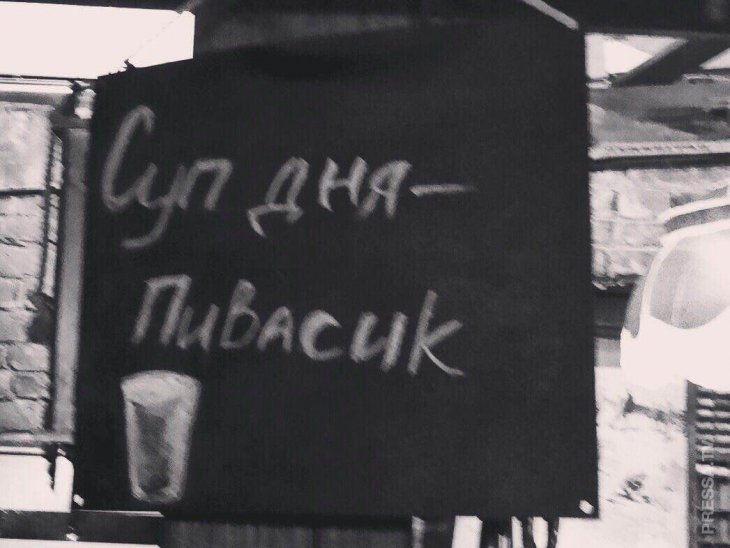 Суп дня—
Пивасик
PRESSA.TV